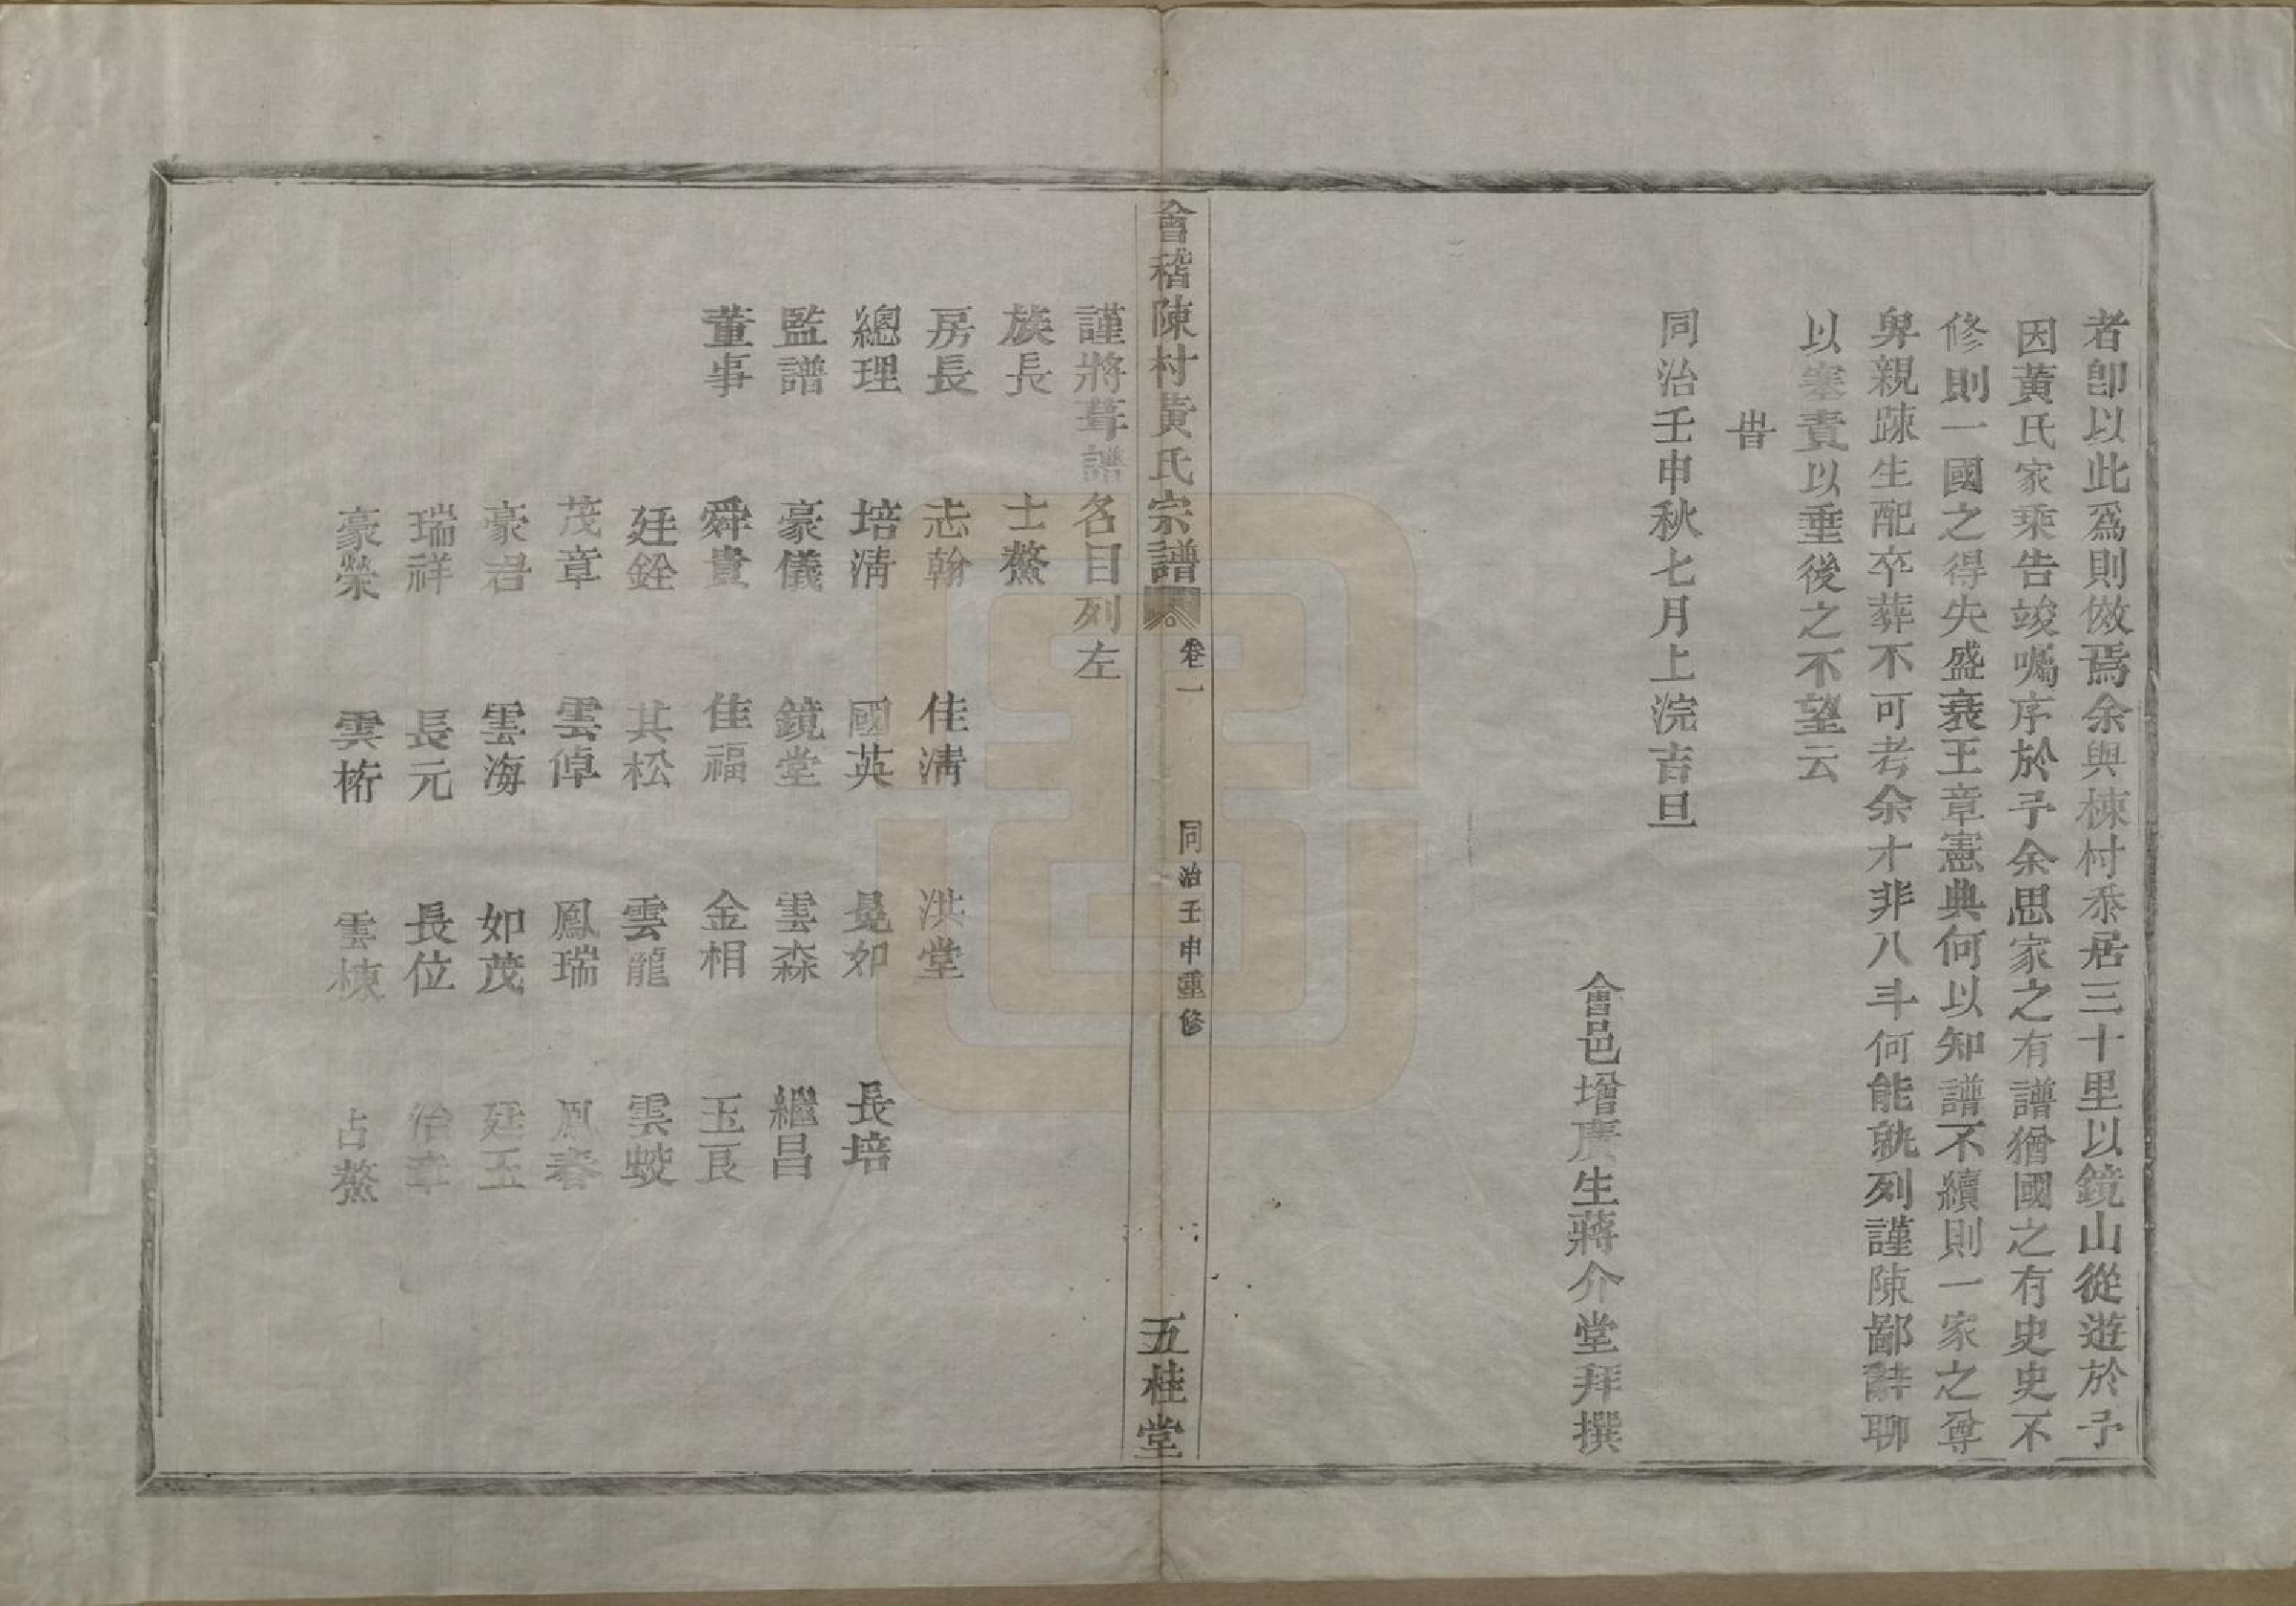 者卽以此爲則倣焉余與棟村忝居三十里以鏡山從遊於予
因黃氏家乘告竣囑序於予余思家之有譜猶國之有史史不
修則一國之得失盛衰王章憲典何以知譜不續則一家之尊
卑親疎生配卒葬不可考余才非八斗何能就列謹陳鄙辭聊
以塞責以垂後之不望云
旹
同治壬申秋七月上浣吉旦
會邑增廣生蔣介堂拜撰
會稽陳村黃氏宗譜 卷一 同治壬申重修 五桂堂
謹將葺譜名目列左
族長 士鰲
房長 志翰 佳淸 洪堂
總理 培淸 國英 晃如 長培
監譜 豪儀 鏡堂 雲森 繼昌
董事 舜貴 佳福 金相 玉良
廷銓 其松 雲龍 雲蛟
茂章 雲倬 鳳瑞 鳳春
豪君 雲海 如茂 廷玉
瑞祥 長元 長位 治章
豪榮 雲椅 雲棟 占鰲